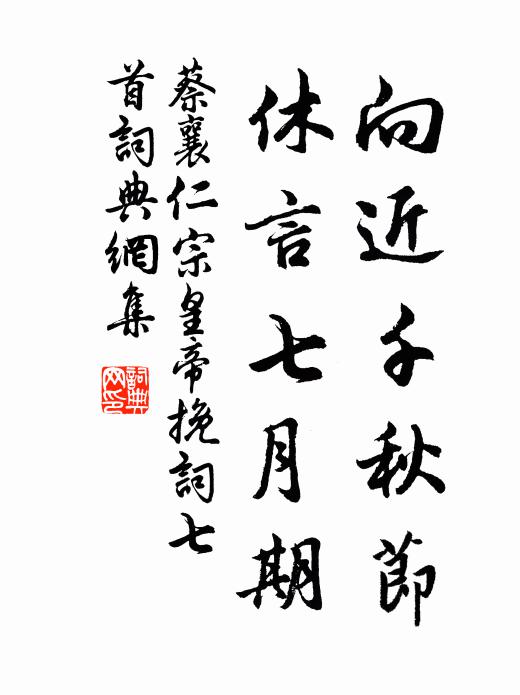 向近千秋節
休言七月期
蔡襄仁宗皇帝挽詞七
首詞典網集
詞典
网印